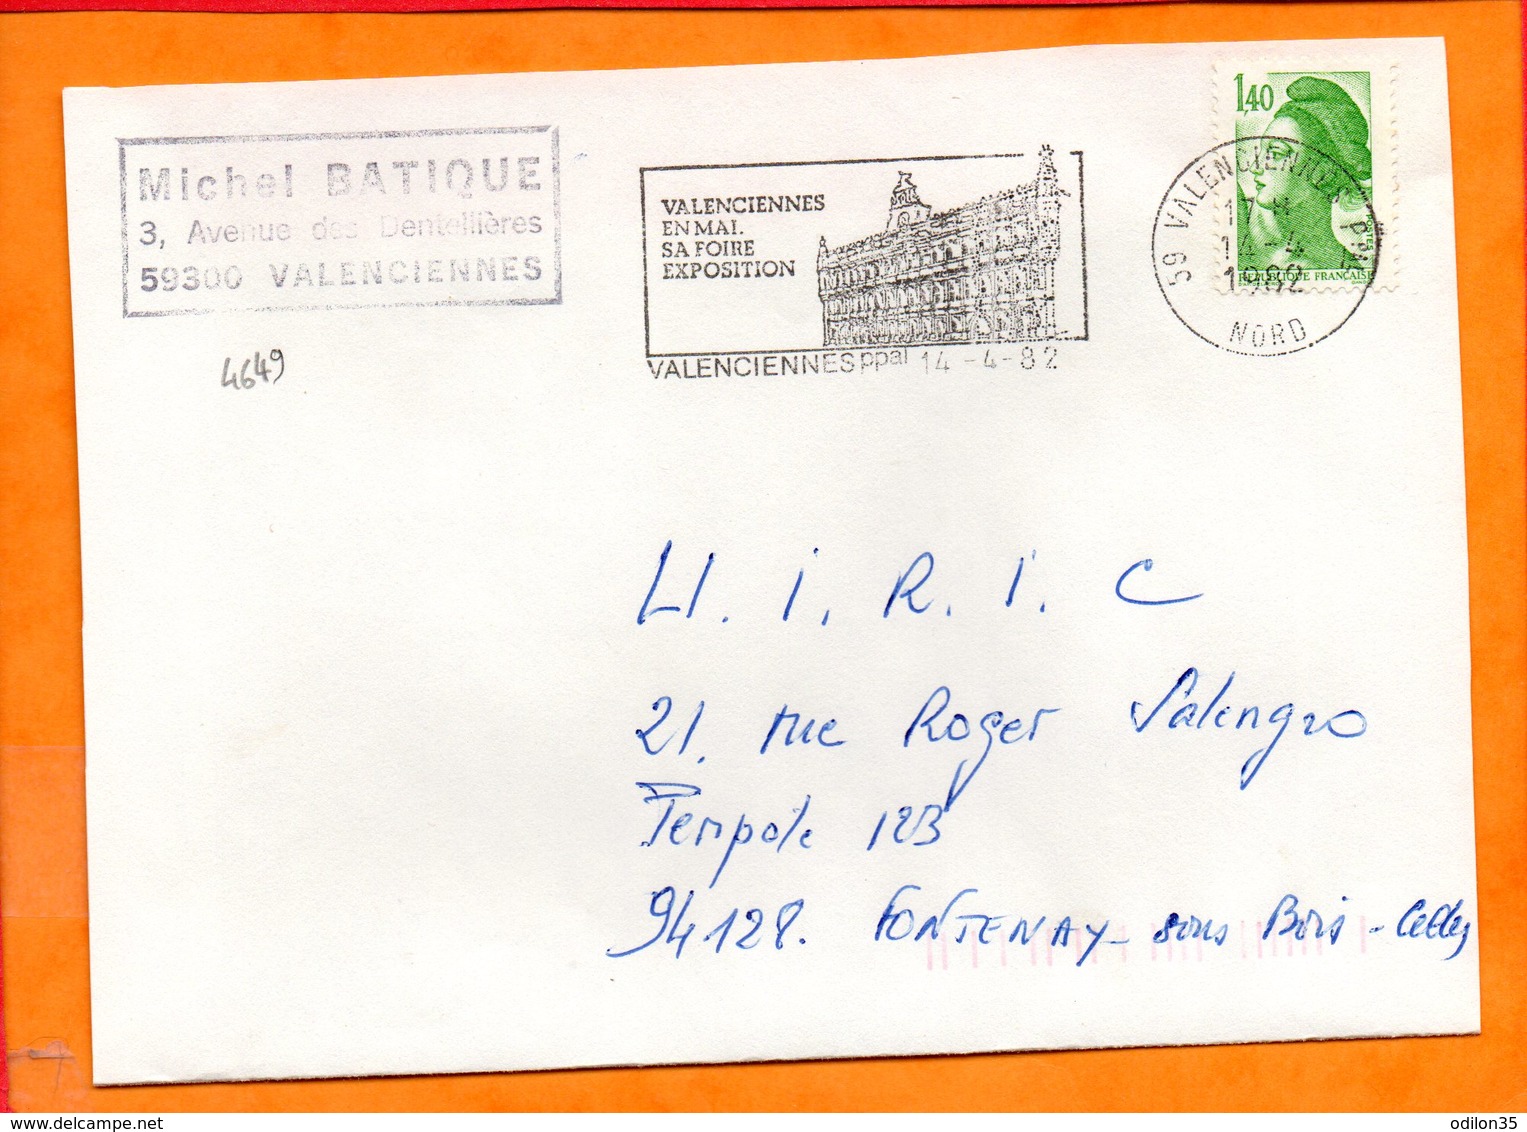 Michel BATIQUE
3, Avenue des Dentellières
59300 VALENCIENNES
4649
VALENCIENNES
EN MAI.
SA FOIRE
EXPOSITION
VALENCIENNES ppal 14-4-82
1,40
POSTES
REPUBLIQUE FRANÇAISE
59 VALENCIENNES PPAL
17 H
14-4
1982
NORD
U. i. R. i. C
21. rue Roger Salengro
Tempole 123
94128. FONTENAY-sous Bois-Cedex
odilon35